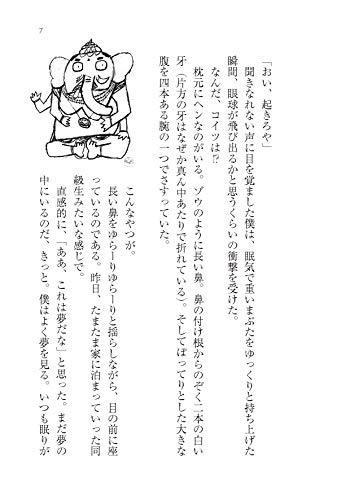 7
「おい、起きろや」
聞きなれない声に目を覚ました僕は、眠気で重いまぶたをゆっくりと持ち上げた
瞬間、眼球が飛び出るかと思うくらいの衝撃を受けた。
なんだ、コイツは!?
枕元にヘンなのがいる。ゾウのように長い鼻。鼻の付け根からのぞく二本の白い
牙(片方の牙はなぜか真ん中あたりで折れている)。そしてぽってりとした大きな
腹を四本ある腕の一つでさすっていた。
こんなやつが。
長い鼻をゆらーりゆらーりと揺らしながら、目の前に座
っているのである。昨日、たまたま家に泊まっていった同
級生みたいな感じで。
直感的に、「ああ、これは夢だな」と思った。まだ夢の
中にいるのだ、きっと。僕はよく夢を見る。いつも眠りが